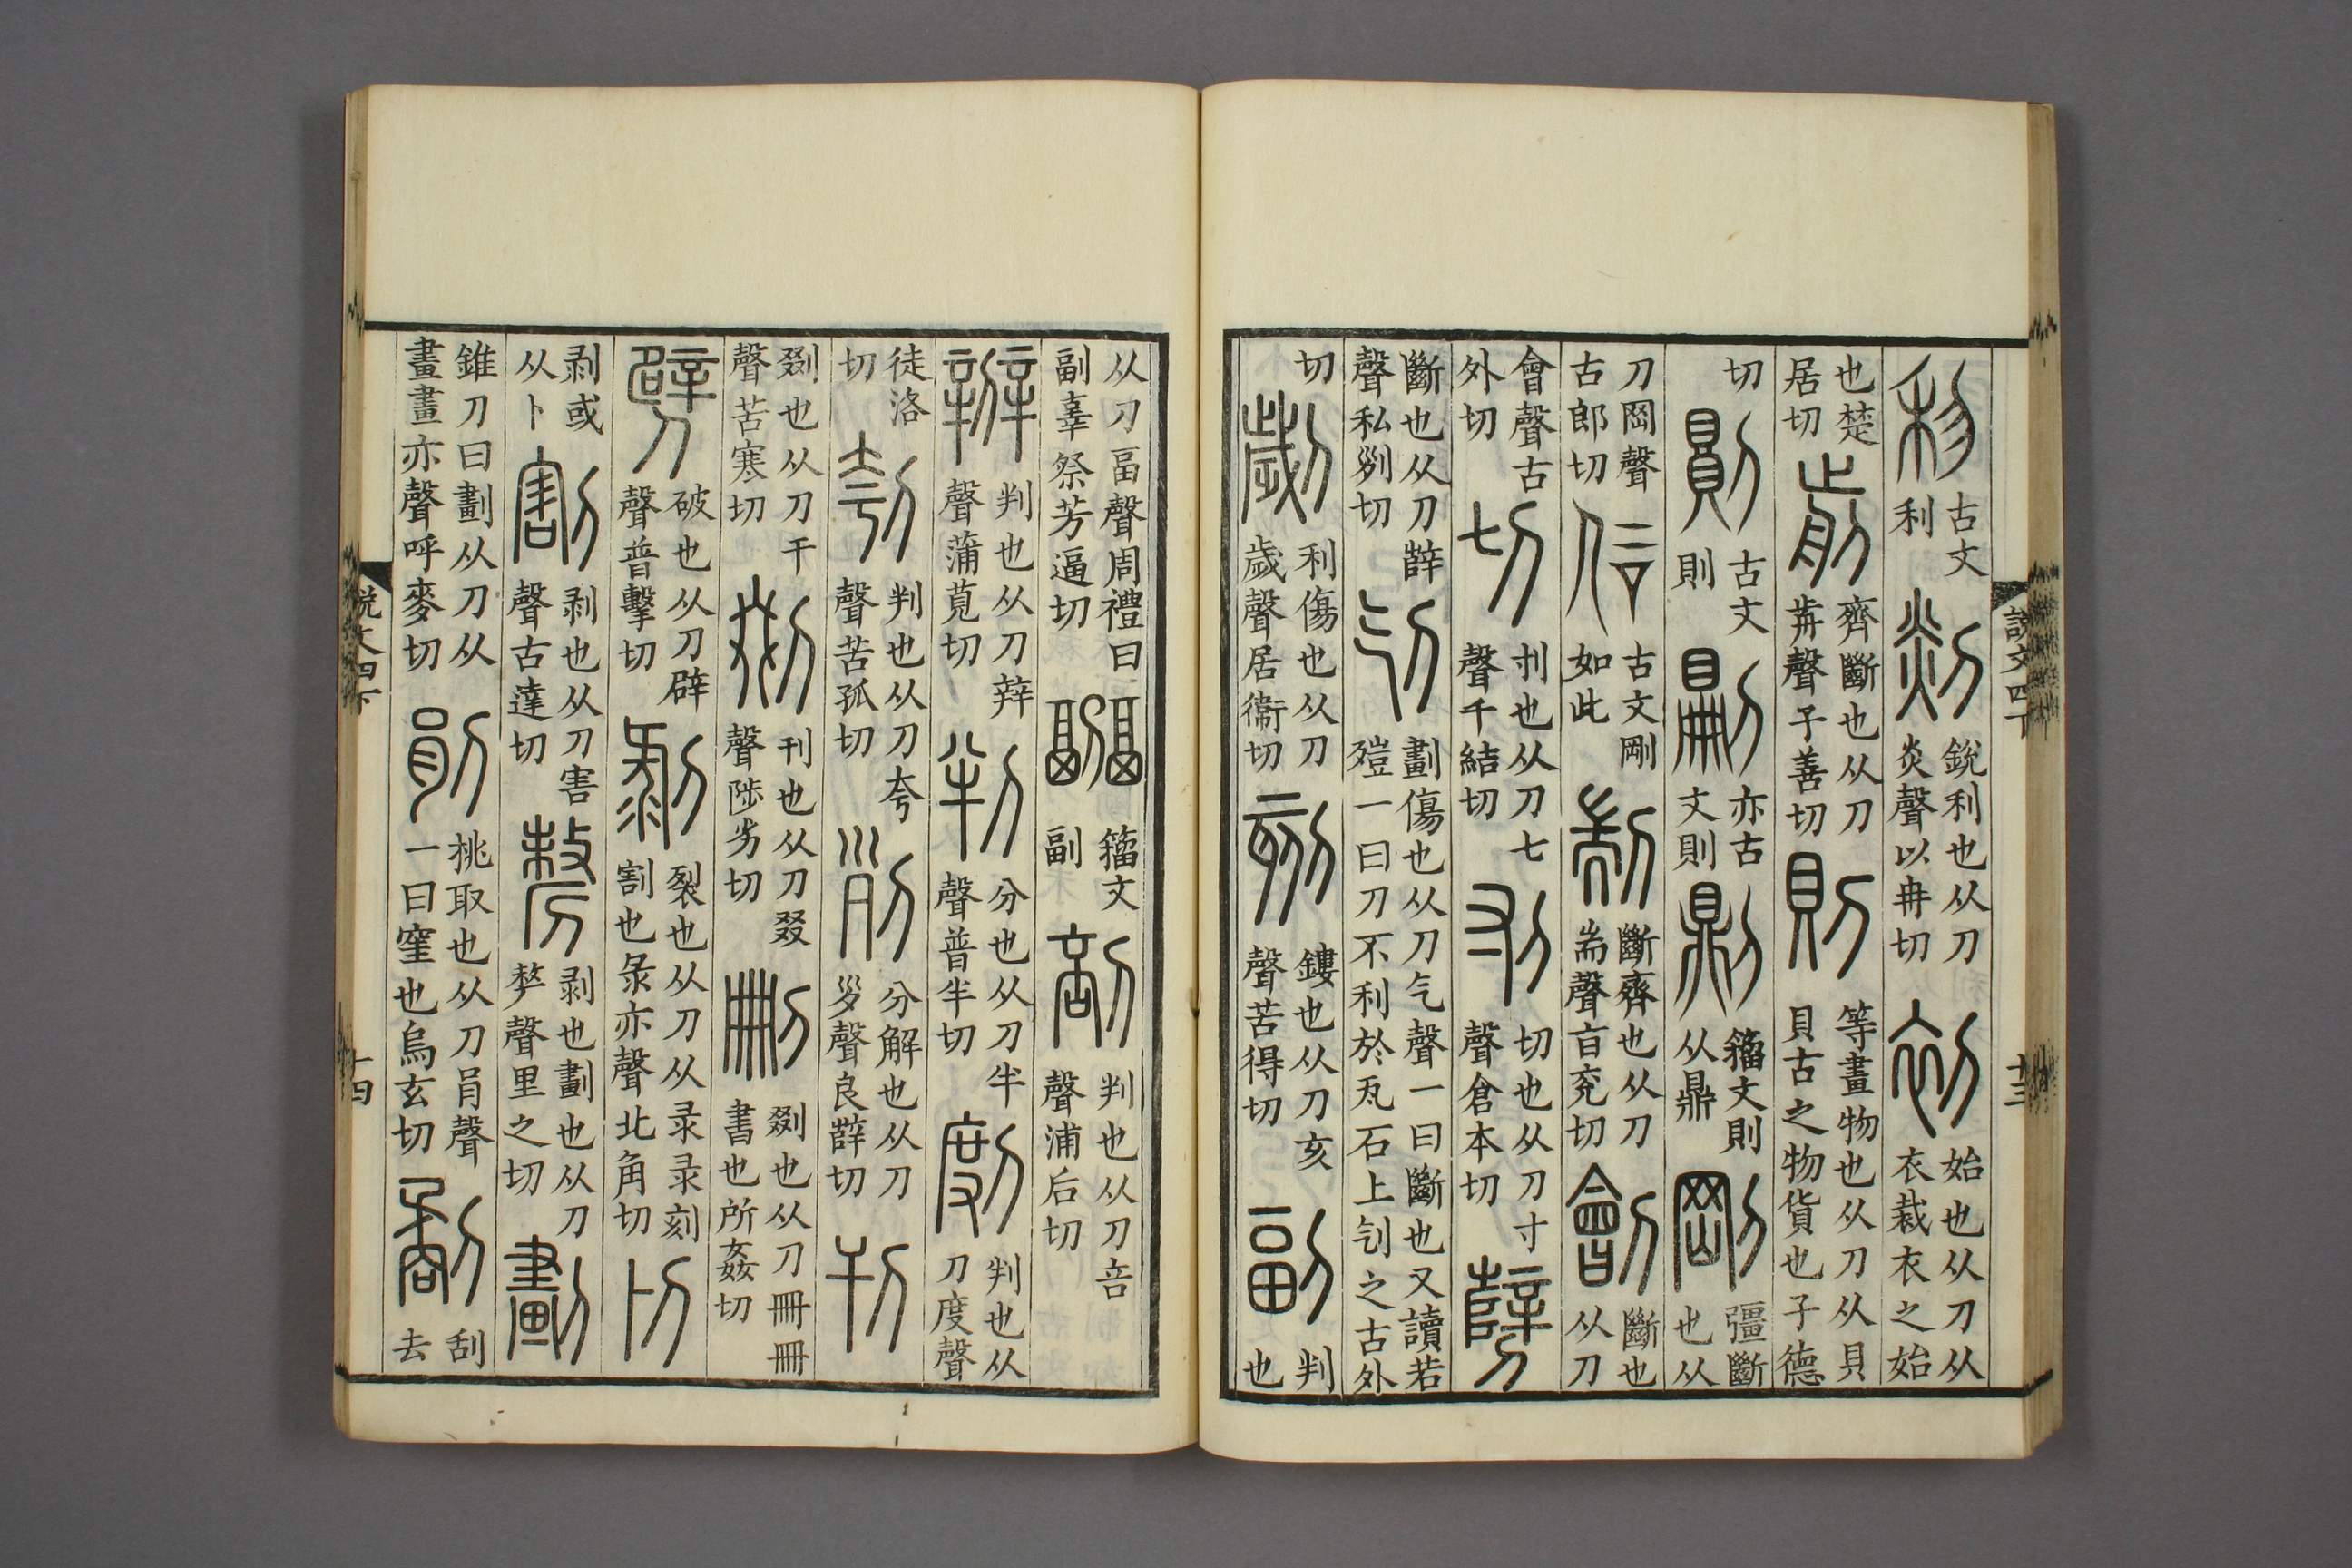 說文四下
十三
𥝢古文利剡銳利也从刀炎聲以冉切初始也从刀从衣裁衣之始
也楚居切前齊斷也从刀歬聲子善切則等畫物也从刀从貝貝古之物貨也子德
切𠞋古文則𠟭亦古文則𠟻籒文則从鼎剛彊斷也从
刀岡聲古郎切𠇙古文剛如此剬斷齊也从刀耑聲旨兗切劊斷也从刀
會聲古外切切刌也从刀七聲千結切刌切也从刀寸聲倉本切𠠷
斷也从刀辥聲私列切刉劃傷也从刀气聲一曰斷也又讀若殪一曰刀不利於瓦石上刉之古外
切劌利傷也从刀歲聲居衞切刻鏤也从刀亥聲苦得切副判也
从刀畐聲周禮曰副辜祭芳逼切疈籒文副剖判也从刀咅聲浦后切
辧判也从刀辡聲蒲莧切判分也从刀半聲普半切剫判也从刀度聲
徒洛切刳判也从刀夸聲苦孤切列分解也从刀𡿪聲良辥切刊
剟也从刀干聲苦寒切剟刊也从刀叕聲陟劣切刪剟也从刀冊冊書也所姦切
劈破也从刀辟聲普擊切剝裂也从刀从录录刻割也录亦聲北角切𠚯
剥或从卜割剥也从刀害聲古達切剺剥也劃也从刀𠩺聲里之切劃
錐刀曰劃从刀从畫畫亦聲呼麥切剈挑取也从刀肙聲一曰窐也烏玄切𠜾刮去
說文四下
十四